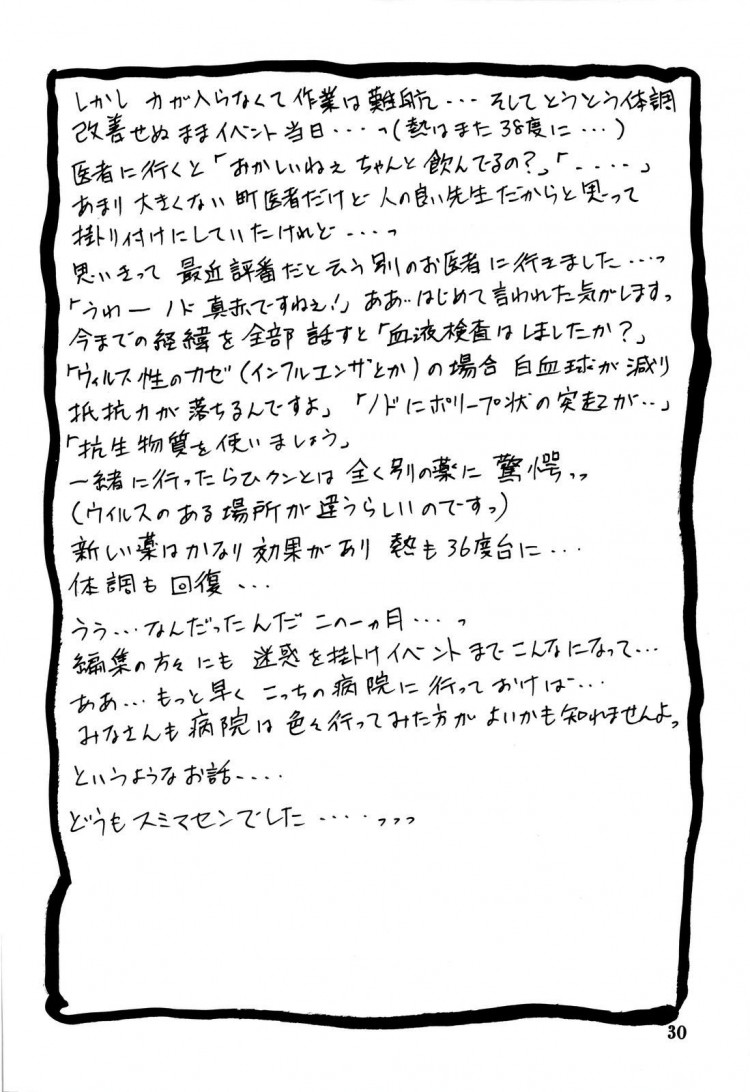 しかし 力が入らなくて作業は難航・・・そしてとうとう体調
改善せぬままイベント当日・・・っ(熱はまた38度に・・・)
医者に行くと「おかしいねぇ ちゃんと飲んでるの?」「・・・・」
あまり大きくない町医者だけど 人の良い先生だからと思って
掛り付けにしていたけれど・・・っ
思いきって 最近評番だと云う別のお医者に行きました・・・っ
「うわー ノド真赤ですねぇ!」ああ・・はじめて言われた気がしますっ
今までの経緯を全部話すと「血液検査はしましたか?」
「ウィルス性のカゼ(インフルエンザとか)の場合 白血球が減り
抵抗力が落ちるんですよ」「ノドにポリープ状の突起が・・」
「抗生物質を使いましょう」
一緒に行ったらひクンとは 全く別の薬に 驚愕っっ
(ウイルスのある場所が違うらしいのですっ)
新しい薬はかなり効果があり 熱も36度台に・・・
体調も回復・・・
うう・・・なんだったんだ この一ヵ月・・・っ
編集の方々にも 迷惑を掛けイベントまでこんなになって・・・
ああ・・・もっと早く こっちの病院に行っておけば・・・
みなさんも病院は色々行ってみた方がよいかも知れませんよっ
というようなお話・・・・
どうもスミマセンでした・・・・っっっ
30